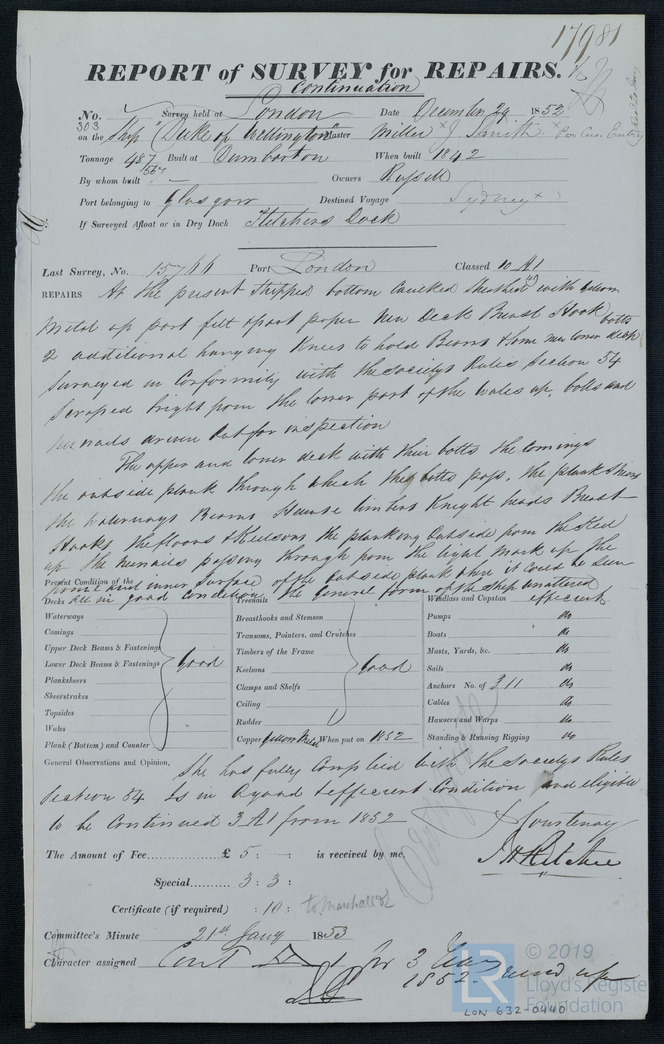 17981
REPORT of SURVEY for REPAIRS.
Continuation
No. Survey held at London Date December 29 1852
303
on the Ship "Duke of Wellington" Master Miller J Smith
Tonnage 487 Built at Dumbarton When built 1842
567
By whom built Owners Russell
Port belonging to Glasgow Destined Voyage Sydney
If Surveyed Afloat or in Dry Dock Fletchers Dock
Last Survey, No. 15766 Port London Classed 10 A1
REPAIRS At the present Stripped bottom Caulked Sheathed with yellow
Metal up part felt & part paper New Deck Breast Hook bolts
2 additional hanging Knees to hold Beams from new lower deck
Surveyed in Conformity with the Societys Rules Section 54
Scraped bright from the lower part of the Wales up, bolts and
treenails driven out for inspection
The upper and lower deck with their bolts the Comings
the outside plank through which the bolts pass, the plank Sheers
the Waterways Beams Hawse timbers Knight heads Breast
Hooks the floors & Keelsons the planking outside from the Keel
up the treenails passing through from the light Mark up the
frame and inner Surface of the outside plank where it could be seen
all in good condition the general form of the Ship unaltered
Present Condition of the
Decks
Waterways
Comings
Upper Deck Beams & Fastenings
Lower Deck Beams & Fastenings
Planksheers
Sheerstrakes
Topsides
Wales
Plank (Bottom) and Counter
Good
Treenails
Breasthooks and Stemson
Transoms, Pointers, and Crutches
Timbers of the Frame
Keelsons
Clamps and Shelfs
Ceiling
Rudder
Good
Copper Yellow Metal When put on 1852
Windlass and Capstan efficient
Pumps do
Boats do
Masts, Yards, &c. do
Sails do
Anchors No. of 3 1 1 do
Cables do
Hawsers and Warps do
Standing & Running Rigging do
General Observations and Opinion,
She has fully Complied with the Societys Rules
Section 54 Is in a good & efficient Condition and eligible
to be Continued 3 A1 from 1852
J Courtenay
J H Ritchie
The Amount of Fee £ 5 : — : is received by me,
Special 3 : 3 :
Certificate (if required) : 10 : to Marshall
Committee's Minute 21st Jany 1853
Character assigned Cont A 1 for 3 Years from
1852
© 2019
LR
Lloyd's Register
Foundation
LON 632-0440